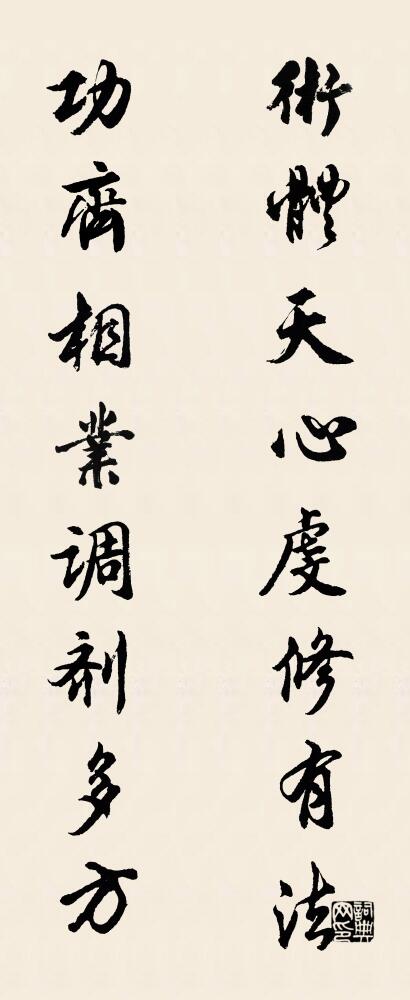 術體天心虔修有法
功齊相業調劑多方
詞典网印